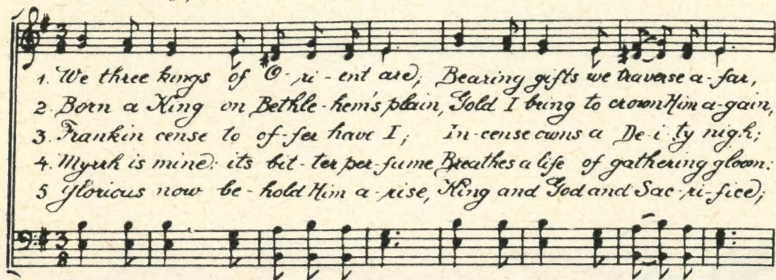 1. We three kings of O-ri-ent are; Bearing gifts we traverse a-far,
2. Born a King on Bethle-hem's plain, Gold I bring to crown Him a-gain,
3. Frankin cense to of-fer have I; In-cense owns a De-i-ty nigh;
4. Myrrh is mine: its bit-ter per-fume, Breathes a life of gathering gloom:
5 Glorious now be-hold Him a-rise, King and God and Sac-ri-fice;